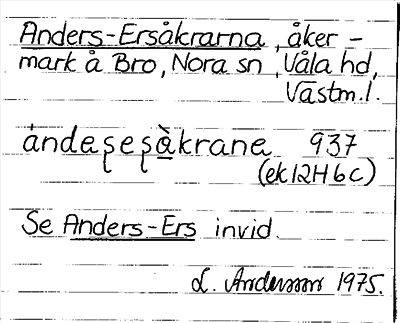 Anders-Ersåkrarna, åker-
mark å Bro, Nora sn, Våla hd,
Västm.l.
ànda̧şeşàkrane 937
(ek 12H 6c)
Se Anders-Ers invid.
L. Andersson 1975.